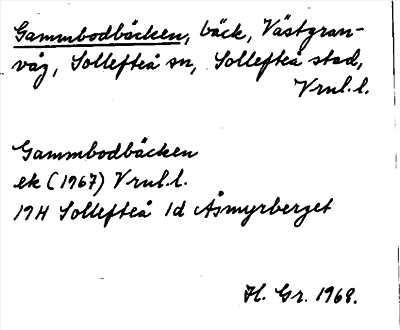 Gammbodbäcken, bäck, Västgran-
våg, Sollefteå sn, Sollefteå stad,
Vrnl. l.
Gammbodbäcken
ek (1967) Vrnl. l.
19H Sollefteå 1d Åsmyrberget
H. Gr. 1968.